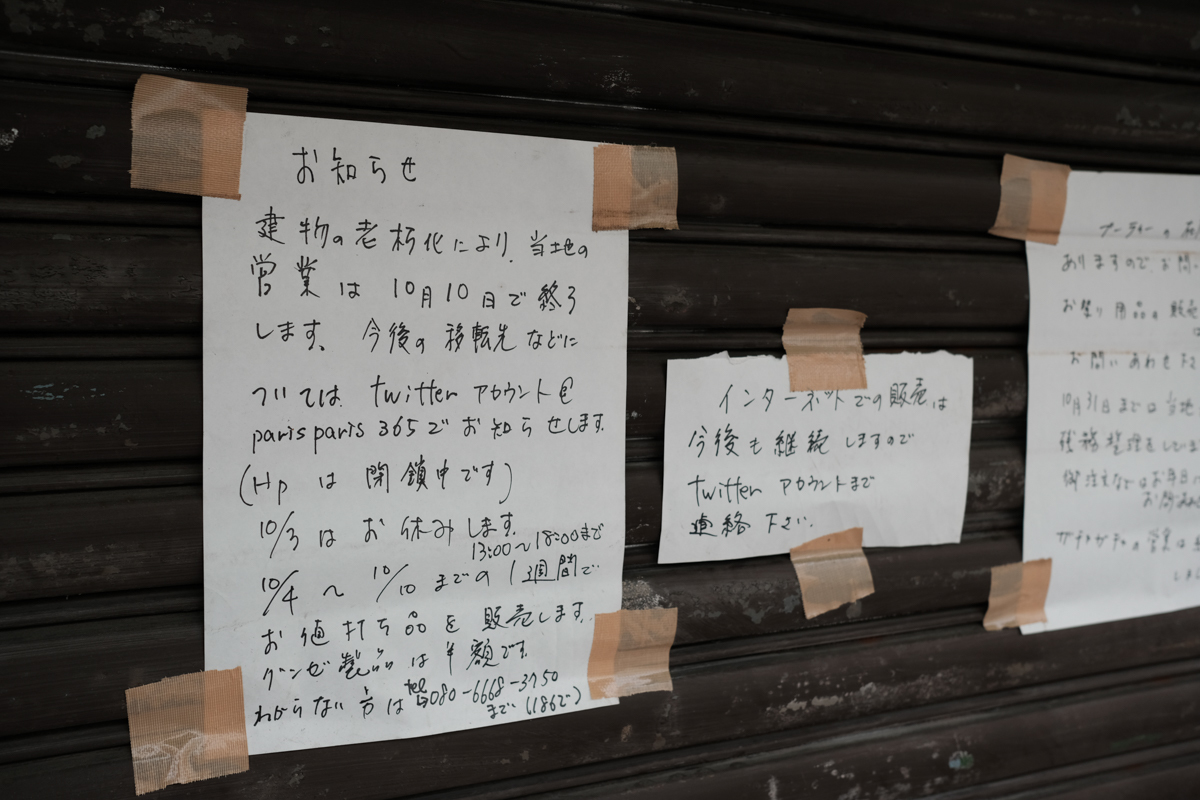 お知らせ
建物の老朽化により、当地の
営業は10月10日で終了
します。今後の移転先などに
ついては twitter アカウント@
parisparis365でお知らせします。
(Hp は閉鎖中です)
10/3はお休みします。
13:00〜18:00まで
10/4〜10/10までの1週間で
お値打ち品を販売します。
グンゼ製品は半額です。
わからない方はtel 080-6668-3750
まで(186で)
インターネットでの販売は
今後も継続しますので
twitter アカウントまで
連絡下さい。
ブーティーの
ありますので、お問い
お祭り用品の販売
お問いあわせ下さ
10月31日までは当地
残務整理をしていま
御注文などはお早目に
お問
ガチャガチャの営業は